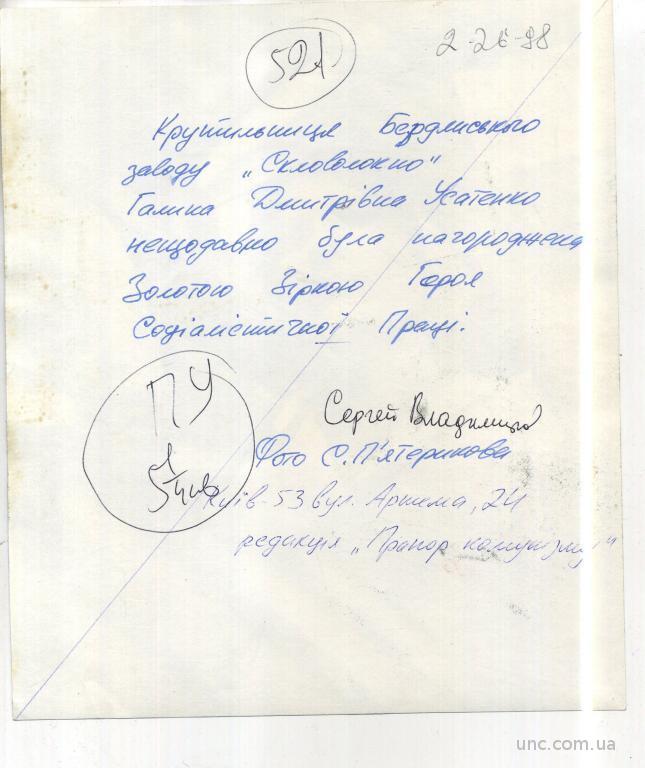 521
2-26-88
Крутильниця Бердянського
заводу „Скловолокно"
Галина Дмитрівна Усатенко
нещодавно була нагороджена
Золотою Зіркою Героя
Соціалістичної Праці.
ПУ
Сергей
Фото С. П'ятерикова
Київ-53 вул. Артема, 24
редакція „Прапор комунізму"
unc.com.ua